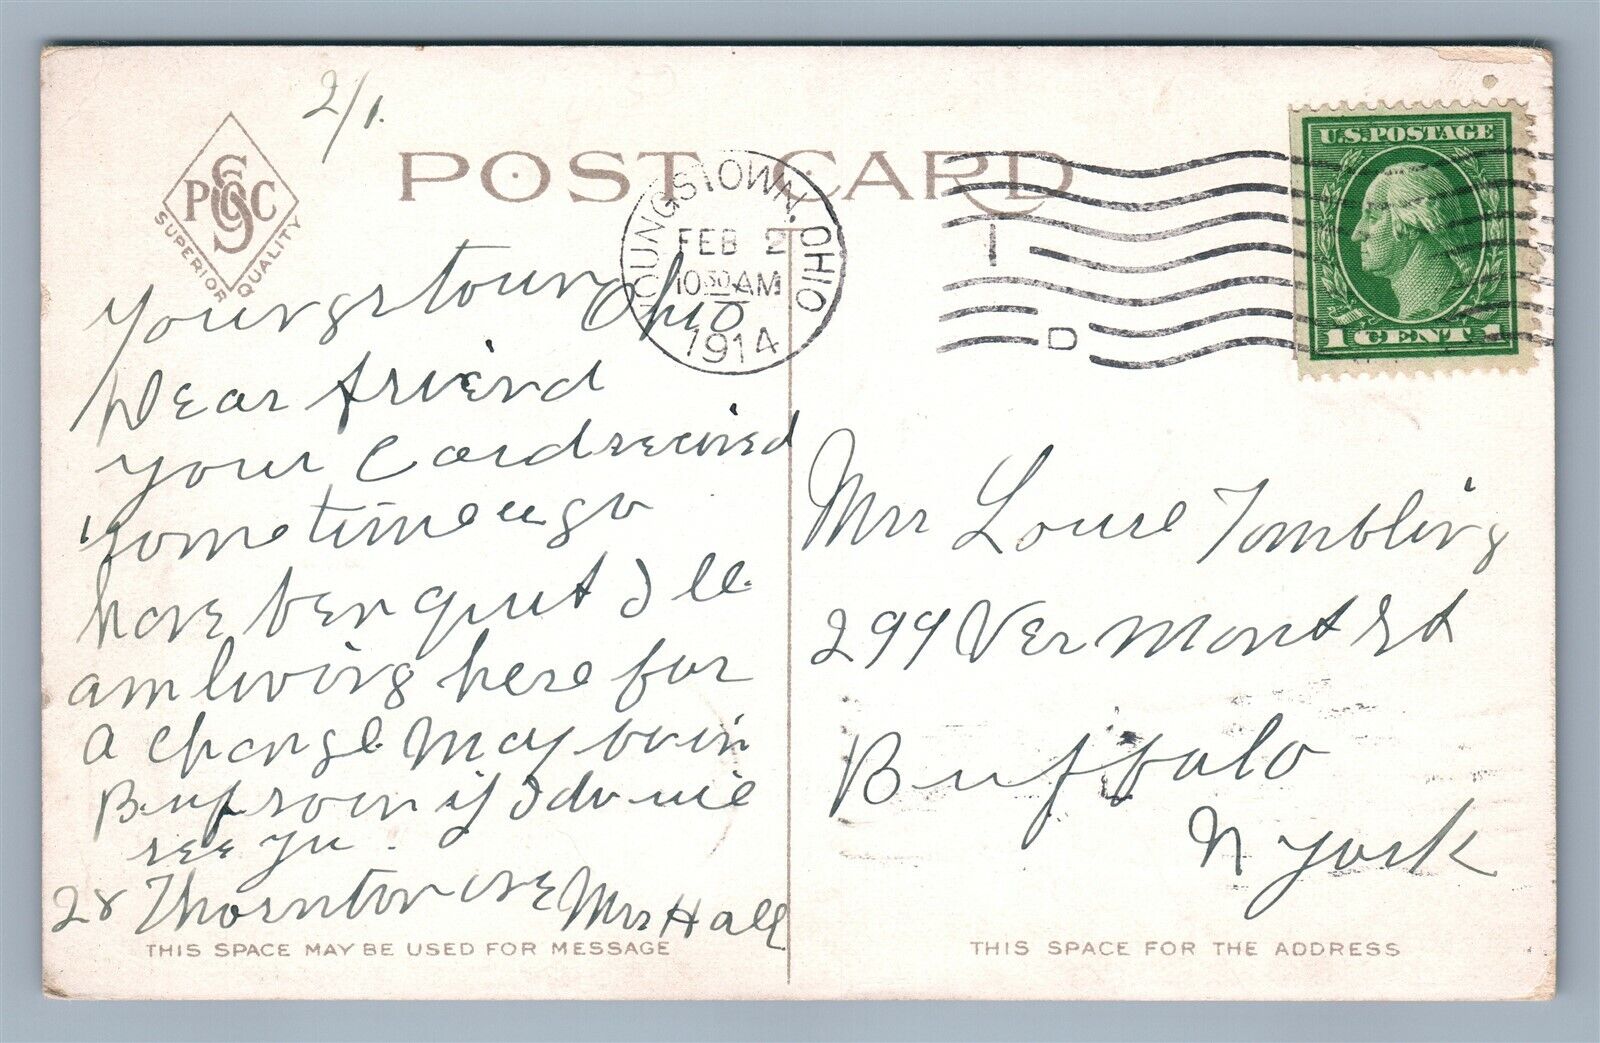 2/1.
POST CARD
PCSCO
SUPERIOR QUALITY
YOUNGSTOWN, OHIO
FEB 2
10 30 AM
1914
1
D
U.S. POSTAGE
1 CENT 1
Youngstown Ohio
Dear friend
your Card recived
some time ago
have ben quit Ill
am living here for
a change May be in
Buf soon if I do wil
see yu.
28 Thornton ave Mrs Hall
Mrs Louise Tombling
299 Vermont St
Buffalo
N York
THIS SPACE MAY BE USED FOR MESSAGE
THIS SPACE FOR THE ADDRESS